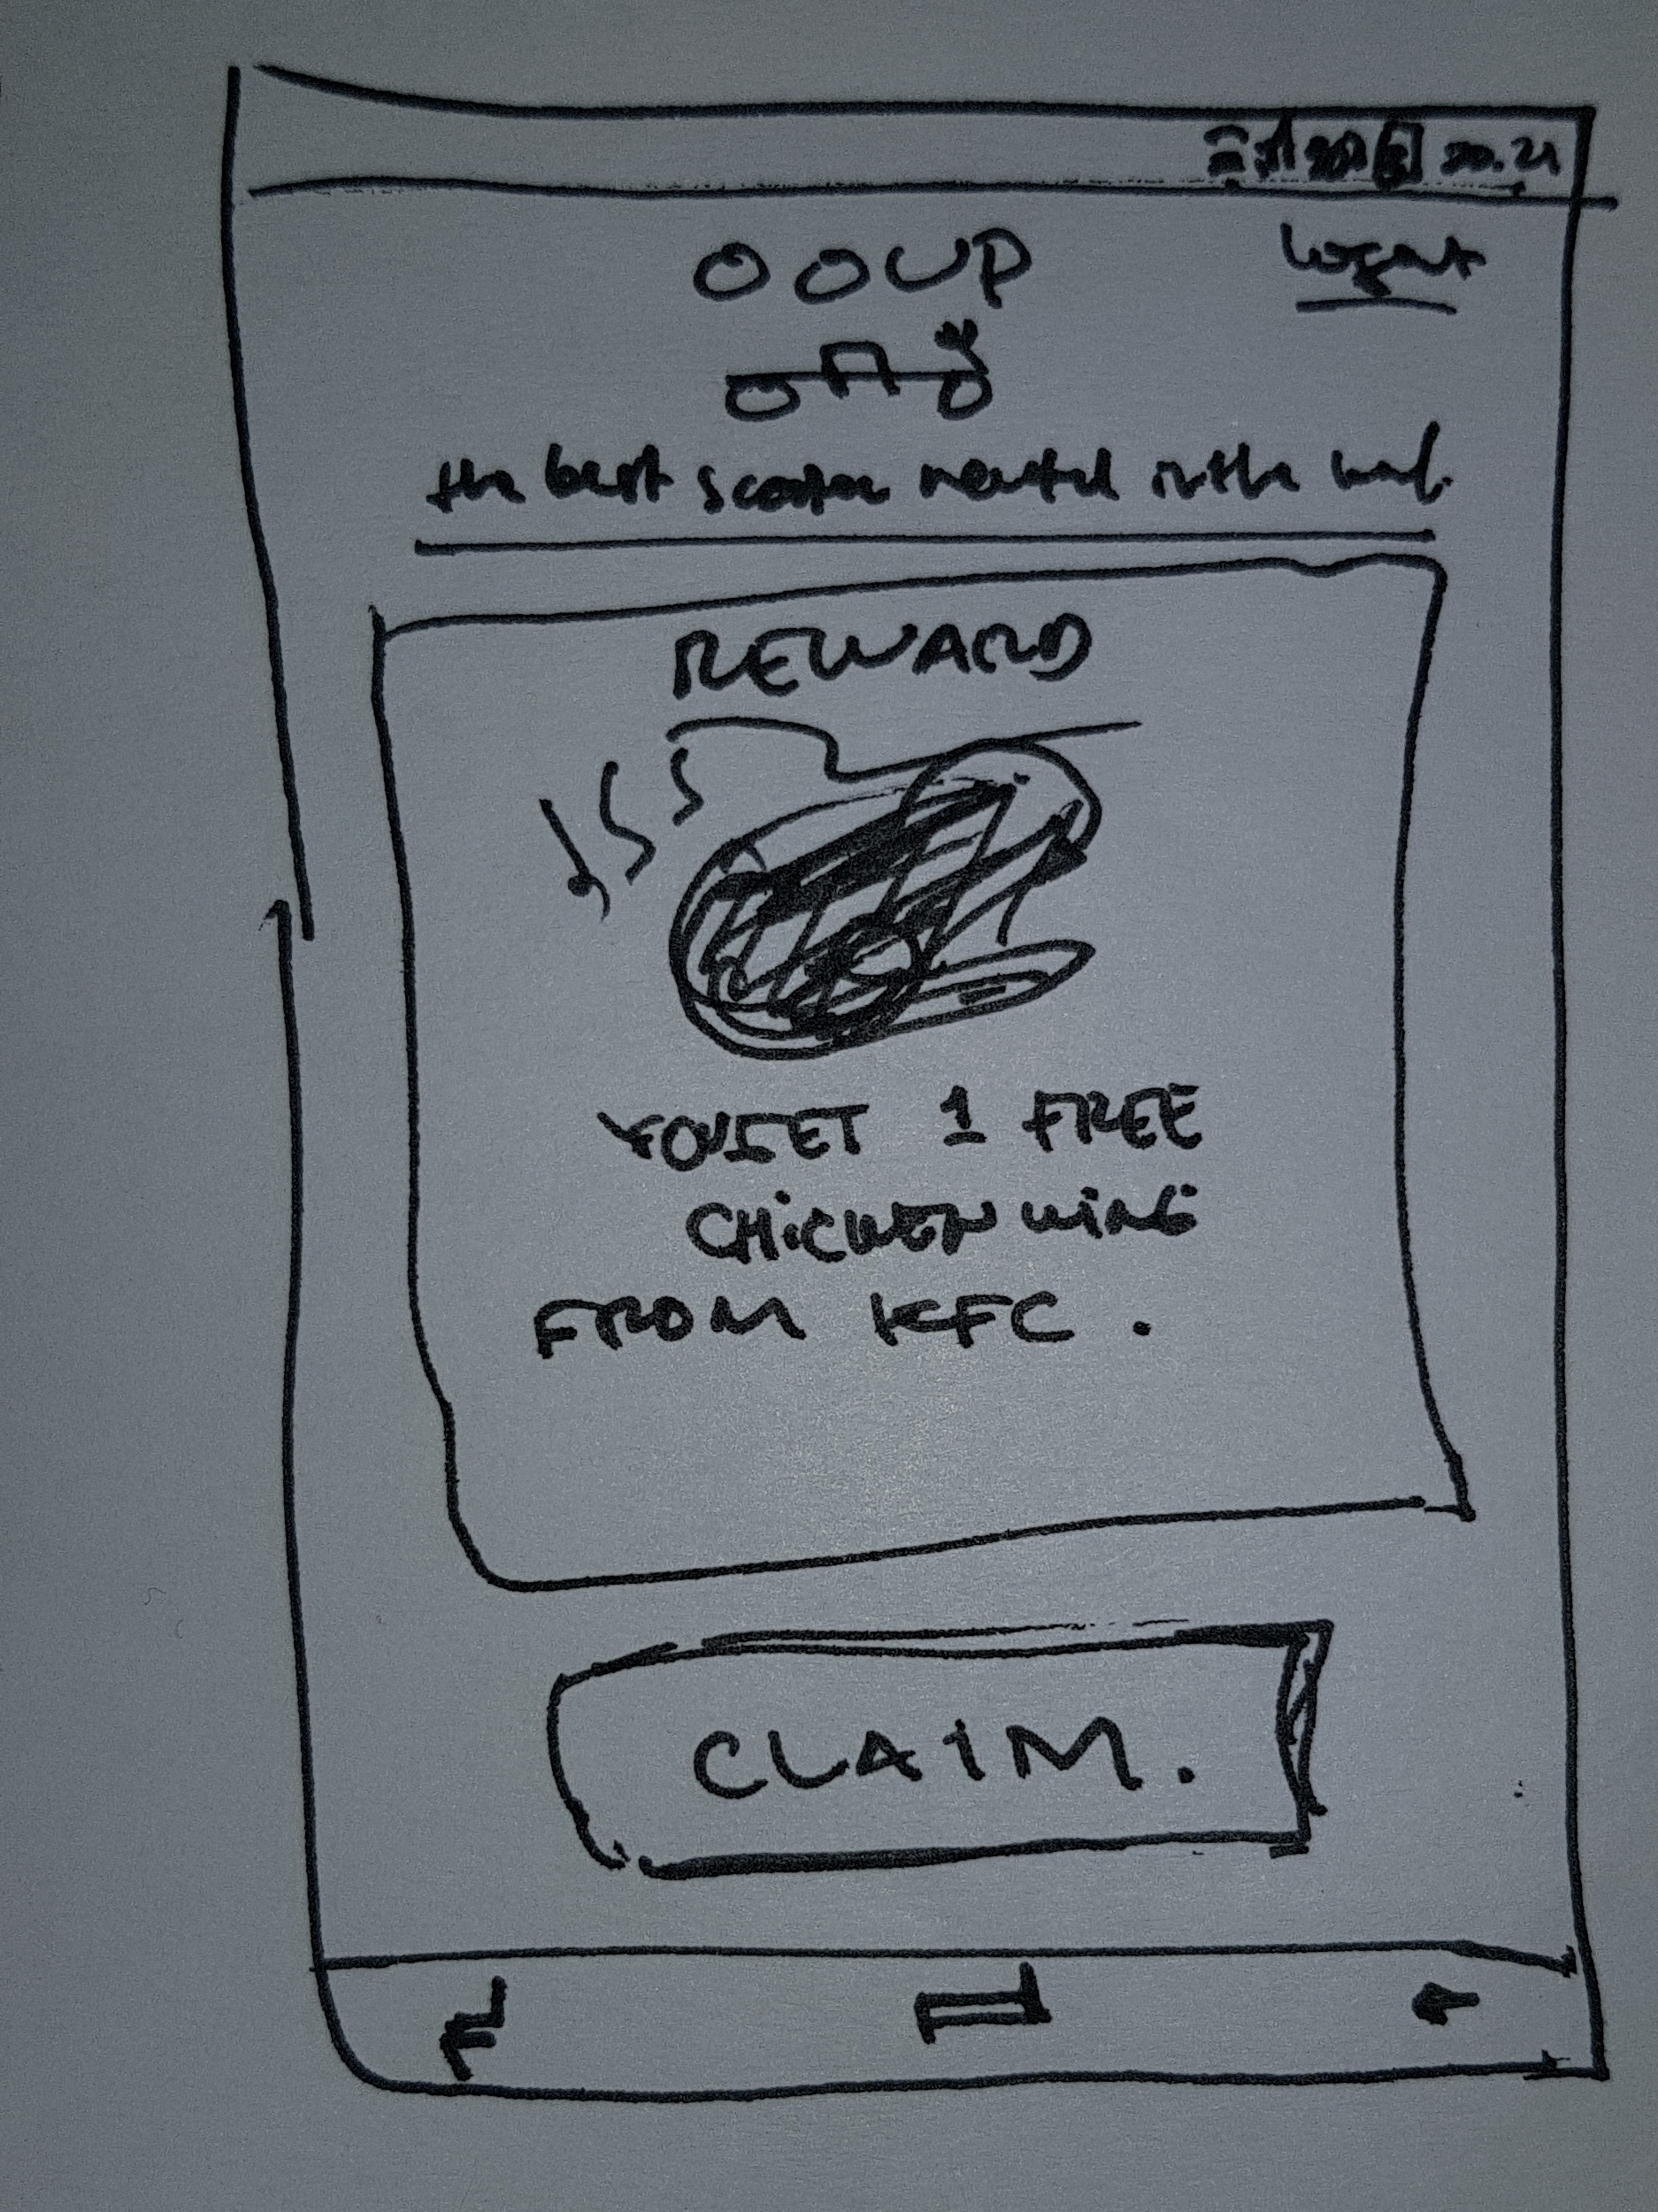 20.21
OOUP
Logout
the best scooter rental in the
REWARD
YOU GET 1 FREE
CHiCKEN WiNG
FROM KFC.
CLAiM.